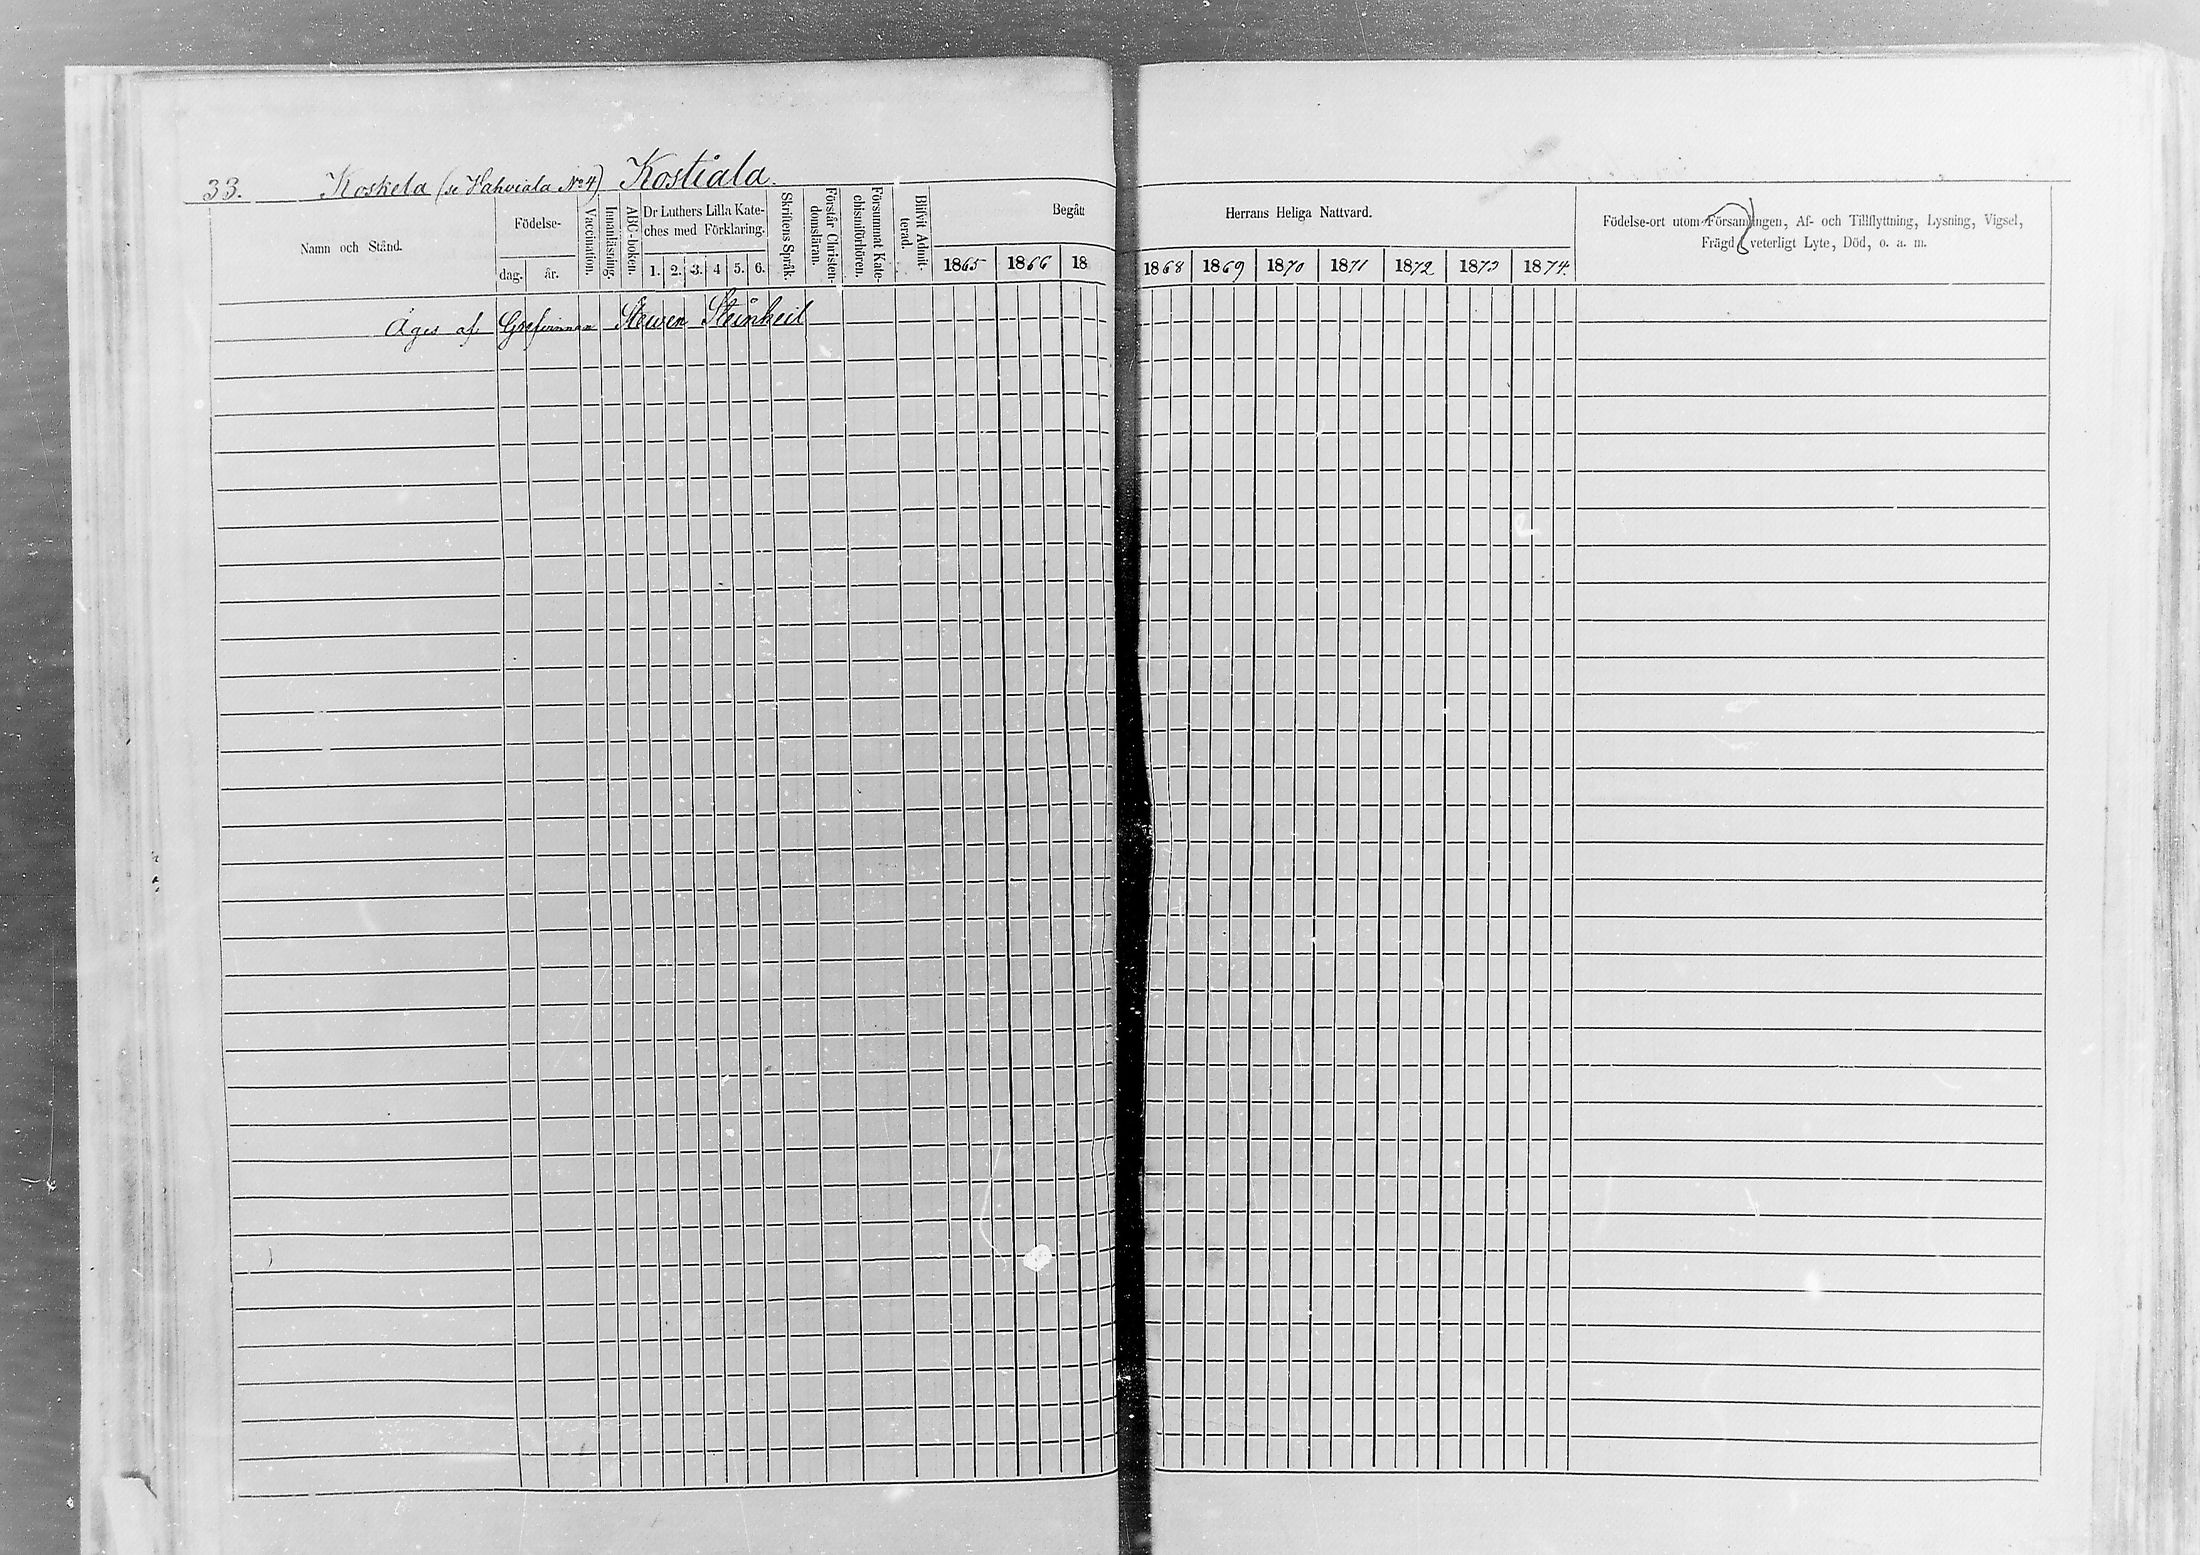 33. Koskela (se Hahviala No 4) Kostiala.
Namn och Stånd.
Födelse-
dag. år.
Vaccination.
Innanläsning.
ABC-boken.
Dr Luthers Lilla Kate-
ches med Förklaring.
1. 2. 3. 4 5. 6.
Skriftens Språk.
Förstår Christen-
domsläran.
Försummat Kate-
chismiförhören.
Blifvit Admit-
terad.
Begått
1865 1866 18
Herrans Heliga Nattvard.
1868 1869 1870 1871 1872 1873 1874
Födelse-ort utom Församlingen, Af- och Tillflyttning, Lysning, Vigsel,
Frägd, veterligt Lyte, Död, o. a. m.
Äges af Grefvinnan Stewen Steinheil